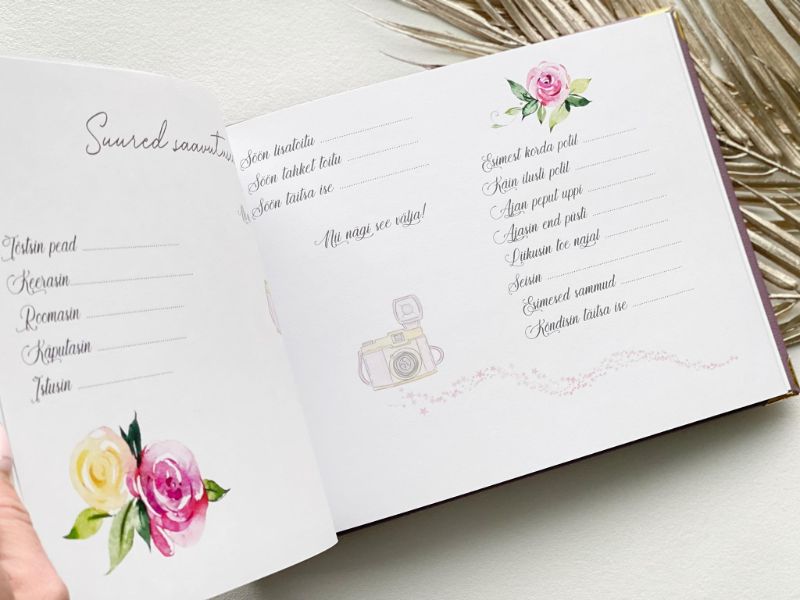 Suured
Tõstsin pead
Keerasin
Roomasin
Käputasin
Istusin
Söön lisatoitu
Söön tahket toitu
Söön täitsa ise
Nii nägi see välja!
Esimest korda potil
Käin ilusti potil
Ajan peput üppi
Ajasin end püsti
Liikusin toe najal
Seisin
Esimesed sammud
Kõndisin täitsa ise